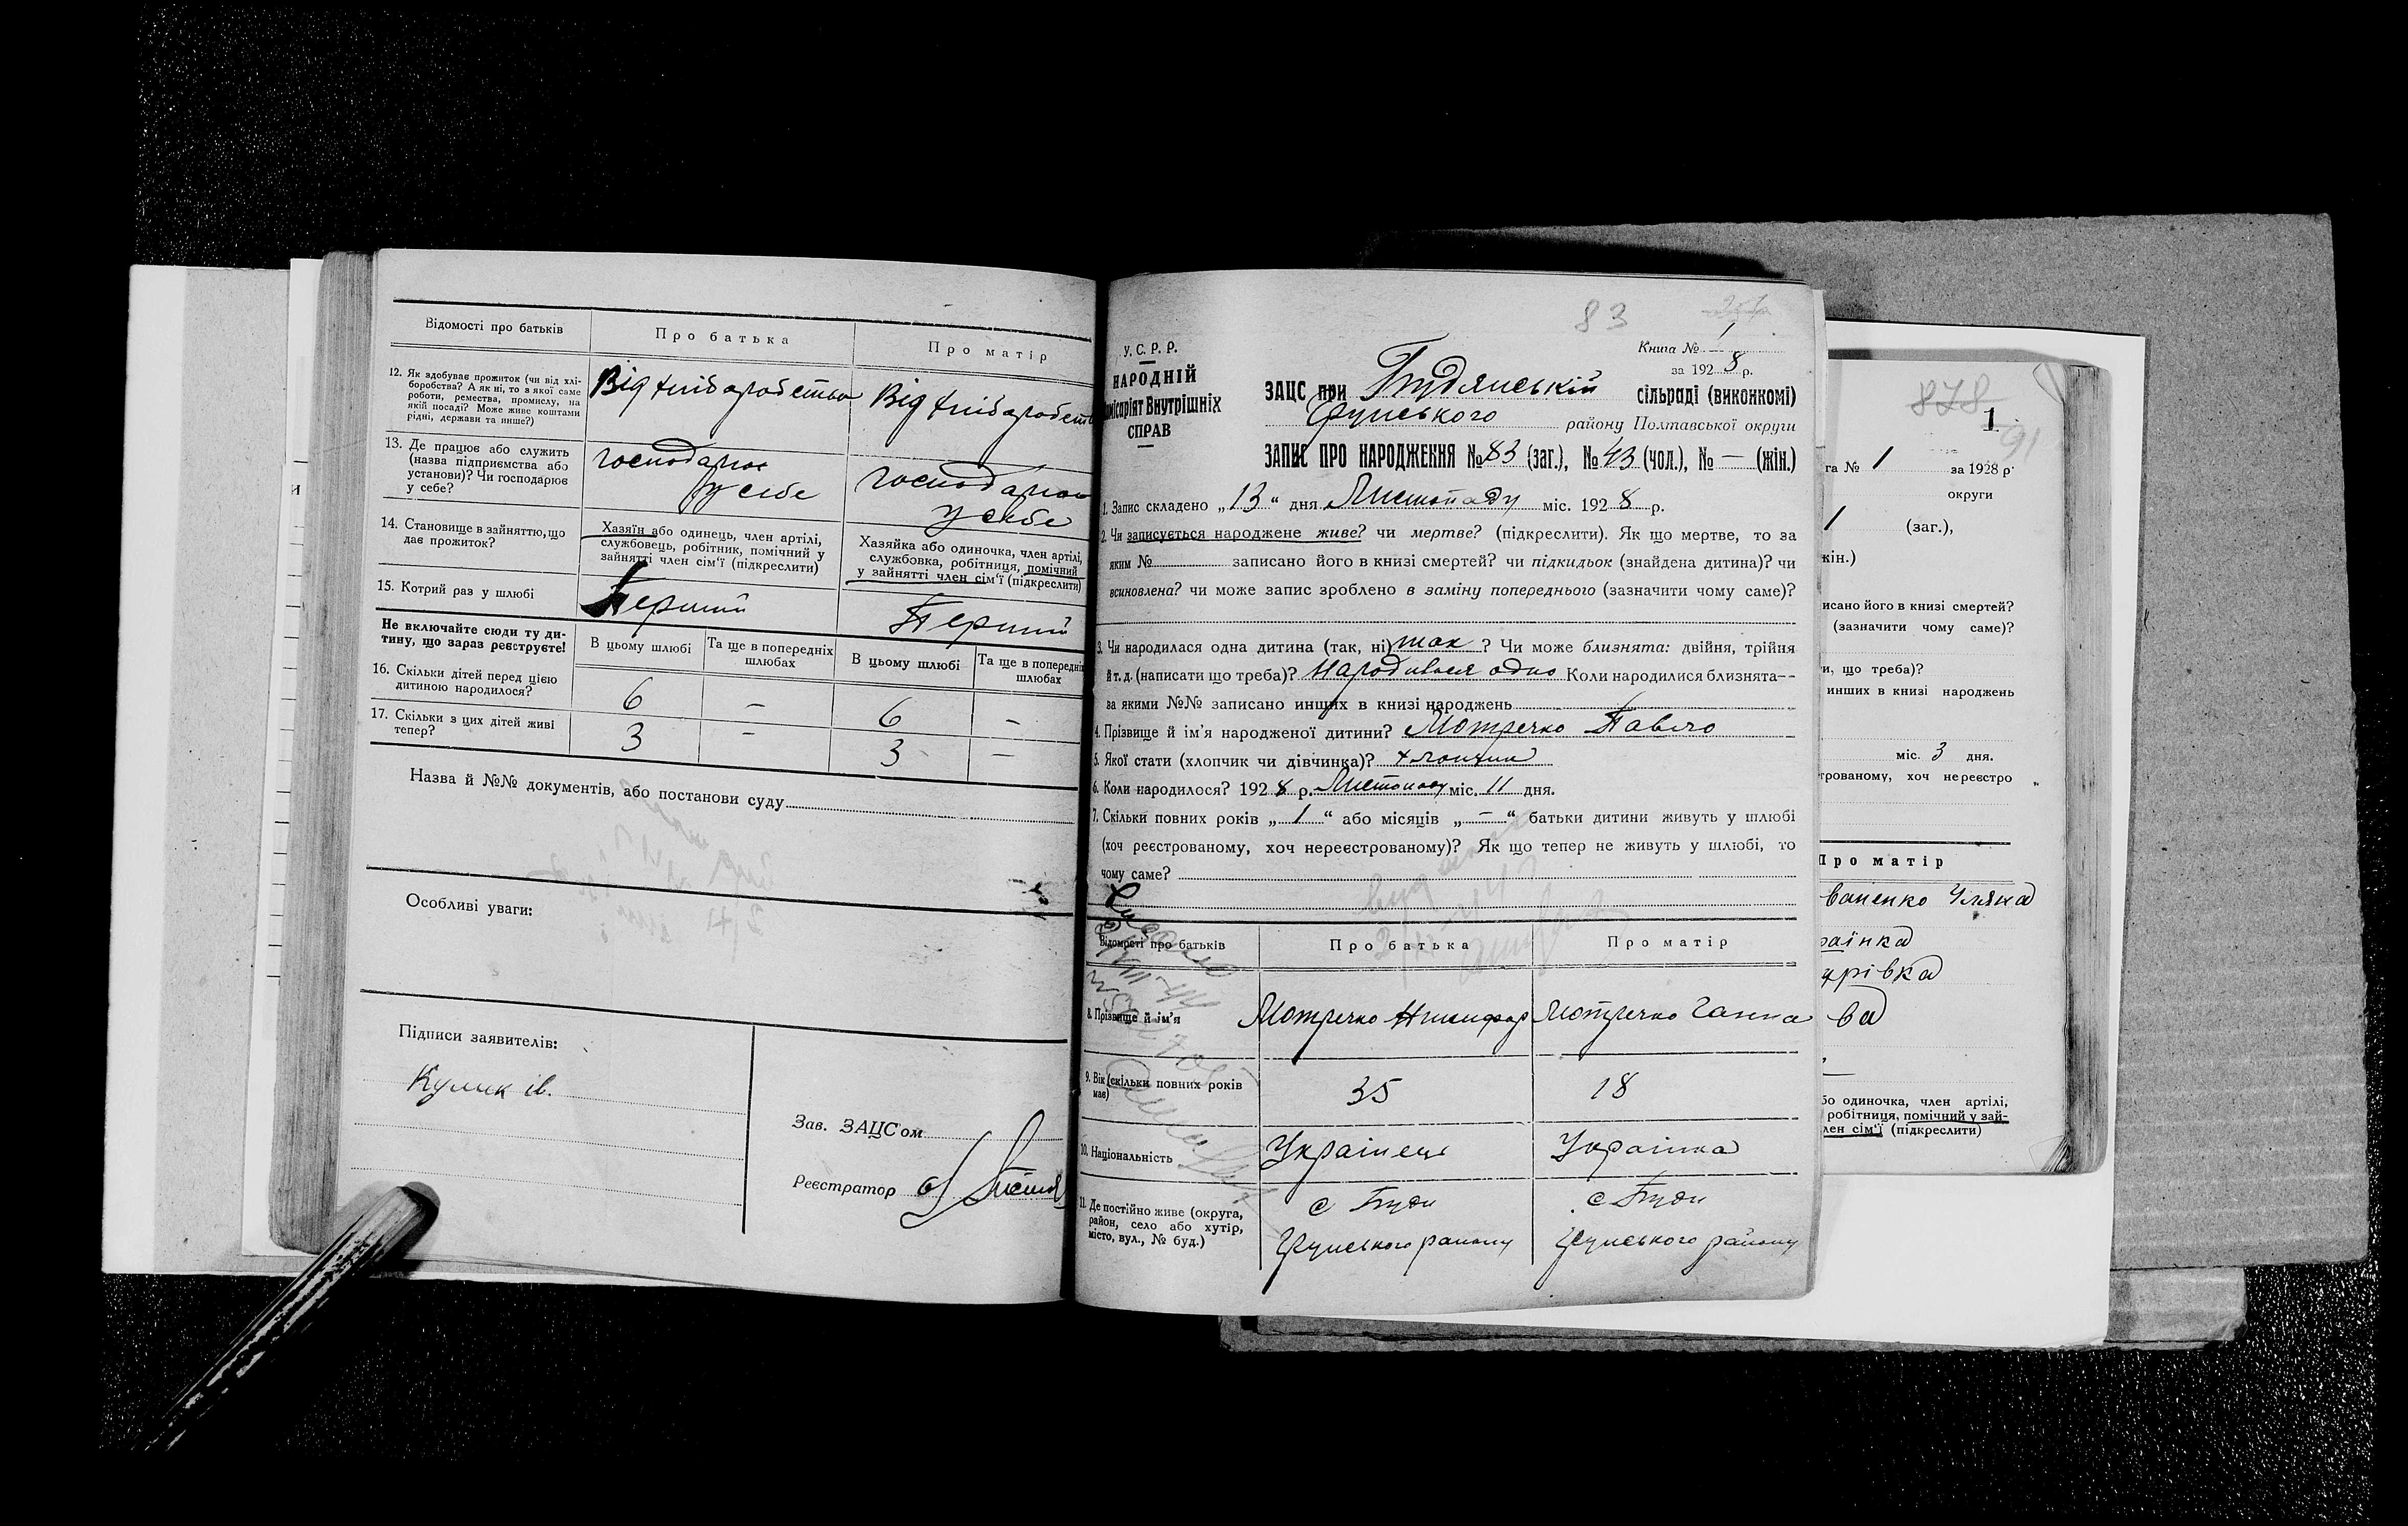 Відомості про батьків
Про батька
Про матір
12. Як здобуває прожиток (чи від хлі-
боробства? А як ні, то з якої саме
роботи, ремества, промислу, на
якій посаді? Може живе коштами
рідні, держави та инше?)
Від хліборобства
Від хліборобств
13. Де працює або служить
(назва підприємства або
установи)? Чи господарює
у себе?
господарює
у себе
господарює
у себе
14. Становище в зайняттю, що
дає прожиток?
Хазяїн або одинець, член артілі,
службовець, робітник, помічний у
зайнятті член сім'ї (підкреслити)
Хазяйка або одиночка, член артілі,
службовка, робітниця, помічний
у зайнятті член сім'ї (підкреслити)
15. Котрий раз у шлюбі
Перший
Перший
Не включайте сюди ту ди-
тину, що зараз реєструєте!
В цьому шлюбі
Та ще в попередніх
шлюбах
В цьому шлюбі
Та ще в попередні
шлюбах
16. Скільки дітей перед цією
дитиною народилося?
6 – 6 –
17. Скільки з цих дітей живі
тепер?
3 – 3 –
Назва й №№ документів, або постанови суду
Особливі уваги:
Підписи заявителів:
Кулик ів.
Зав. ЗАЦС'ом
Реєстратор
83
У. С. Р. Р.
НАРОДНІЙ
місаріят Внутрішніх
СПРАВ
Книга № 1
за 1928 р.
ЗАЦС при Будянській сільраді (виконкомі)
району Полтавської округи
ЗАПИС ПРО НАРОДЖЕННЯ № 83 (заг.), № 43 (чол.), № — (жін.)
1. Запис складено „13“ дня Листопаду міс. 1928 р.
2. Чи записується народжене живе? чи мертве? (підкреслити). Як що мертве, то за
яким № записано його в книзі смертей? чи підкидьок (знайдена дитина)? чи
всиновлена? чи може запис зроблено в заміну попереднього (зазначити чому саме)?
3. Чи народилася одна дитина (так, ні) так? Чи може близнята: двійня, трійня
й т. д. (написати що треба)? Народилося одно Коли народилися близнята--
за якими №№ записано инших в книзі народжень
4. Прізвище й ім'я народженої дитини? Мотречко Павло
5. Якої стати (хлопчик чи дівчинка)? хлопчик
6. Коли народилося? 1928 р. Листопаду міс. 11 дня.
7. Скільки повних років „1“ або місяців „–“ батьки дитини живуть у шлюбі
(хоч реєстрованому, хоч нереєстрованому)? Як що тепер не живуть у шлюбі, то
чому саме?
Відомості про батьків
Про батька
Про матір
8. Прізвище й ім'я
Мотречко Никифор
Мотречко Ганна
9. Вік (скільки повних років
має)
35
18
10. Національність
Українець
Українка
11. Де постійно живе (округа,
район, село або хутір,
місто, вул., № буд.)
с Буди
району
с Буди
району
878
91
1
га № 1 за 1928 р.
округи
1 (заг.),
жін.)
писано його в книзі смертей?
(зазначити чому саме)?
и, що треба)?
инших в книзі народжень
міс. 3 дня.
трованому, хоч нереєстро
Про матір
ваненко Уляна
раїнка
урівка
ва
бо одиночка, член артілі,
робітниця, помічний у зай-
лен сім'ї (підкреслити)